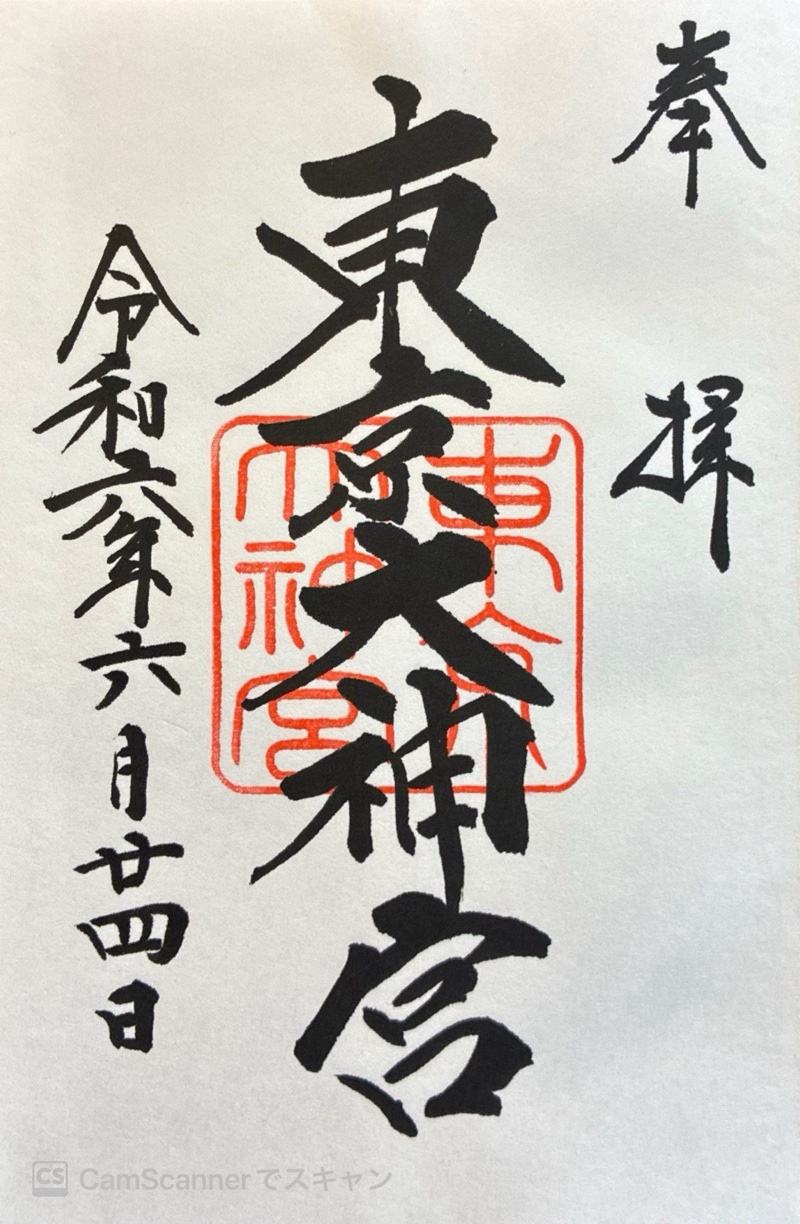 奉拝
東京大神宮
東京大神宮
令和六年六月廿四日
CS CamScannerでスキャン